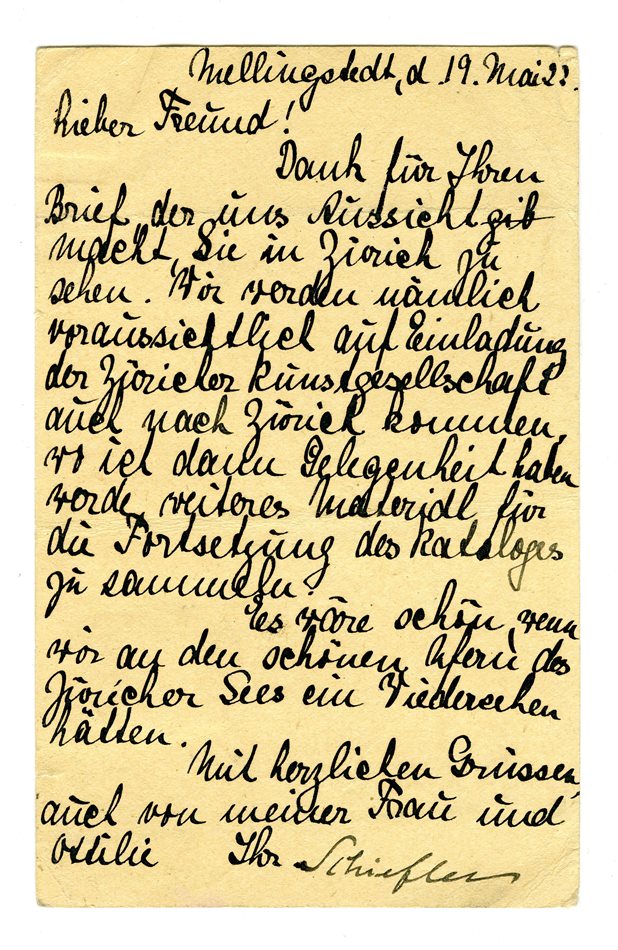 Mellingstedt, d. 19. Mai 22.
Lieber Freund!
Dank für Ihren
Brief, der uns Aussicht gib
macht, Sie in Zürich zu
sehen. Wir werden nämlich
voraussichtlich auf Einladung
der Züricher Kunstgesellschaft
auch nach Zürich kommen,
wo ich dann Gelegenheit haben
werde, weiteres Material für
die Fortsetzung des Kataloges
zu sammeln.
Es wäre schön, wenn
wir an den schönen Ufern des
Züricher Sees ein Wiedersehen
hätten.
Mit herzlichen Grüssen,
auch von meiner Frau und
Ottilie Ihr Schiefler